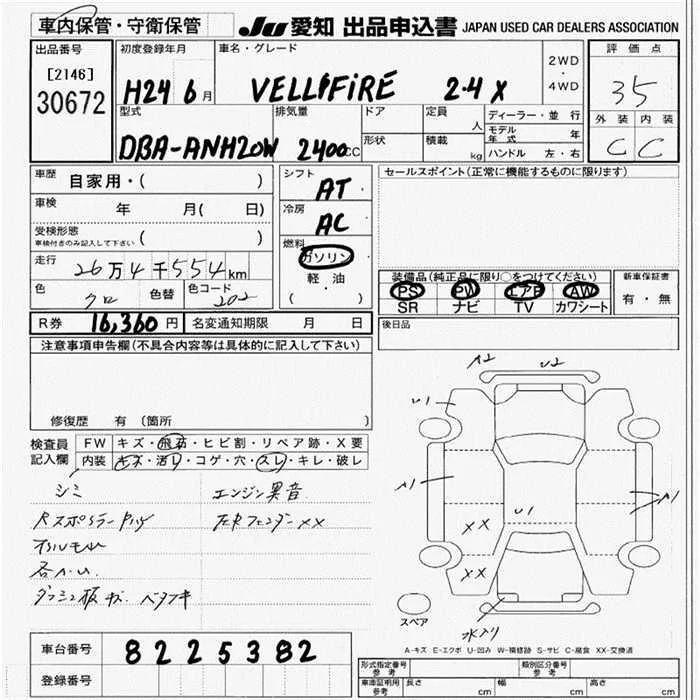 車内保管・守衛保管
JU 愛知 出品申込書 JAPAN USED CAR DEALERS ASSOCIATION
出品番号
[2146]
30672
初度登録年月
H24 6月
車名・グレード
VELLFIRE 2.4 X
2WD
・
4WD
評価点
35
外装 内装
C C
型式
DBA-ANH20W
排気量
2400cc
ドア
形状
定員
人
積載
kg
ディーラー・並行
モデル年式 年
ハンドル 左・右
車歴 自家用・( )
車検 年 月( 日)
受検形態
車検付きのみ記入して下さい ( )
走行 26万4千554km
色 クロ 色替 色コード 202
シフト
AT
冷房
AC
燃料
ガソリン
軽・油
( )
セールスポイント(正常に機能するものに限ります)
装備品(純正品に限り○をつけてください)
PS PW エアB AW
SR ナビ TV カワシート
新車保証書
有・無
R券 16,360円 名変通知期限 月 日
後日品
注意事項申告欄(不具合内容等は具体的に記入して下さい)
修復歴 有(箇所 )
検査員
記入欄
FW キズ・飛石・ヒビ割・リペア跡・X要
内装 キズ・汚レ・コゲ・穴・スレ・キレ・破レ
シミ
エンジン異音
左Rフェンダー XX
A2 U2
U1
A1
U1
A1
XX
XX
水入り
スペア
A-キズ E-エクボ U-凹み W-補修跡 S-サビ C-腐食 XX-交換済
車台番号 8225382
登録番号
形式指定番号
参考
類別区分番号
参考
車庫証明用
参考
長さ cm 幅 cm 高さ cm